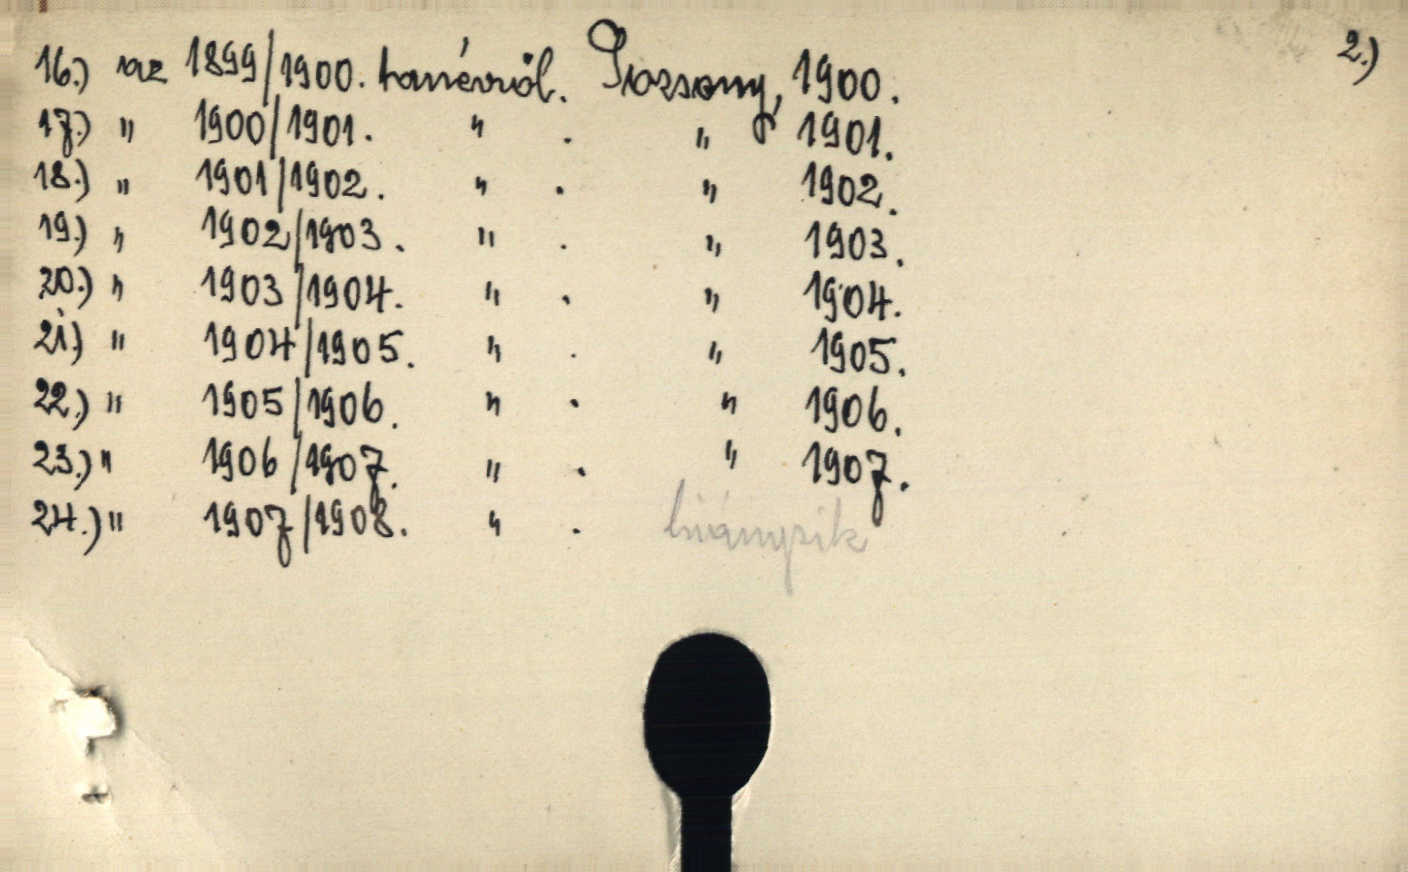 2.)
16.) az 1899/1900. tanévről. Pozsony, 1900.
17.) " 1900/1901. " . " 1901.
18.) " 1901/1902. " . " 1902.
19.) " 1902/1903. " . " 1903.
20.) " 1903/1904. " . " 1904.
21.) " 1904/1905. " . " 1905.
22.) " 1905/1906. " . " 1906.
23.) " 1906/1907. " . " 1907.
24.) " 1907/1908. " . hiányzik